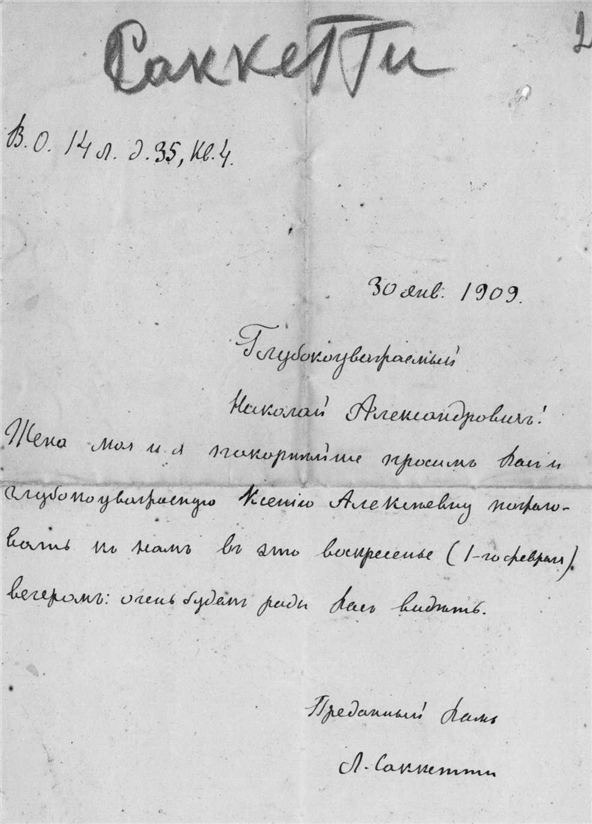 Саккетти
2
В.О. 14 л. д. 35, кв. 4.
30 янв. 1909.
Глубокоуважаемый
Николай Александровичъ!
Жена моя и я покорнѣйше просимъ Васъ и
глубокоуважаемую Ксенію Алексѣевну пожало-
вать къ намъ въ это воскресенье (1-го февраля)
вечеромъ: очень будемъ рады Васъ видѣть.
Преданный Вамъ
Л. Саккетти